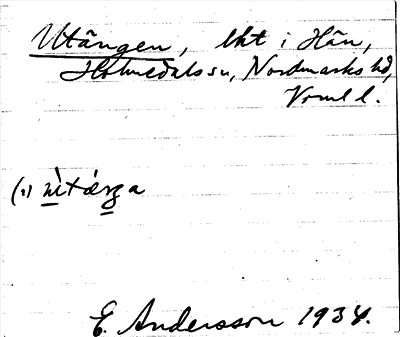 Utängen, lht i Hän,
Holmedals sn, Nordmarks hd,
Vrml l.
E. Andersson 1934.